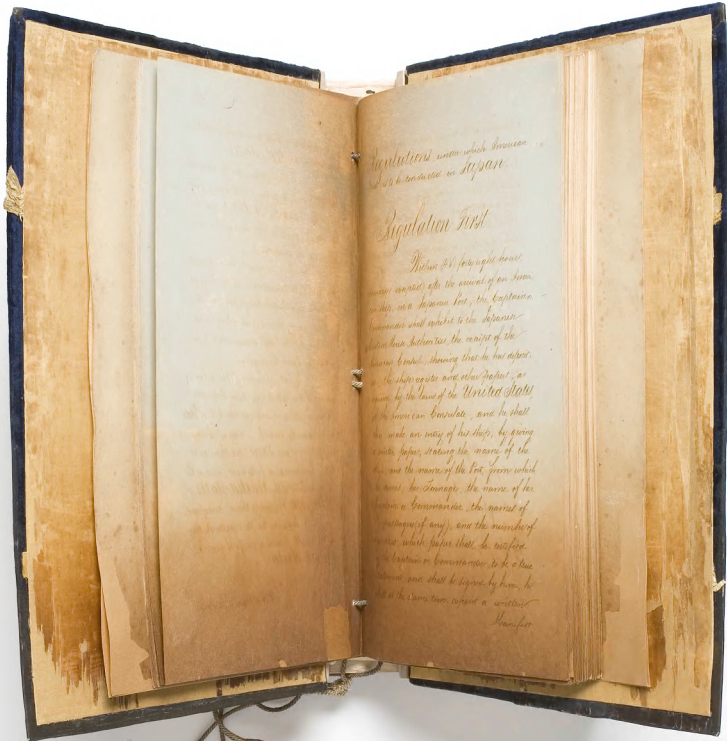 Regulations under which American
to be conducted in Japan.
Regulation First
Within 48 (forty eight) hours
Sundays excepted) after the arrival of an American
in a Japanese Port, the Captain or
Commander shall exhibit to the Japanese
House Authorities, the receipt of the
Consul, showing that he has deposited
the ships register and other Papers, as
by the laws of the United States
American Consulate, and he shall
make an entry of his Ship, by giving
paper, stating the name of the
and the name of the Port from which
her Tonnage, the name of her
or Commander, the names of
(if any), and the number of
which paper shall be certified
Captain or Commander to be a true
and shall be signed by him, he
at the same time, a written
Manifest